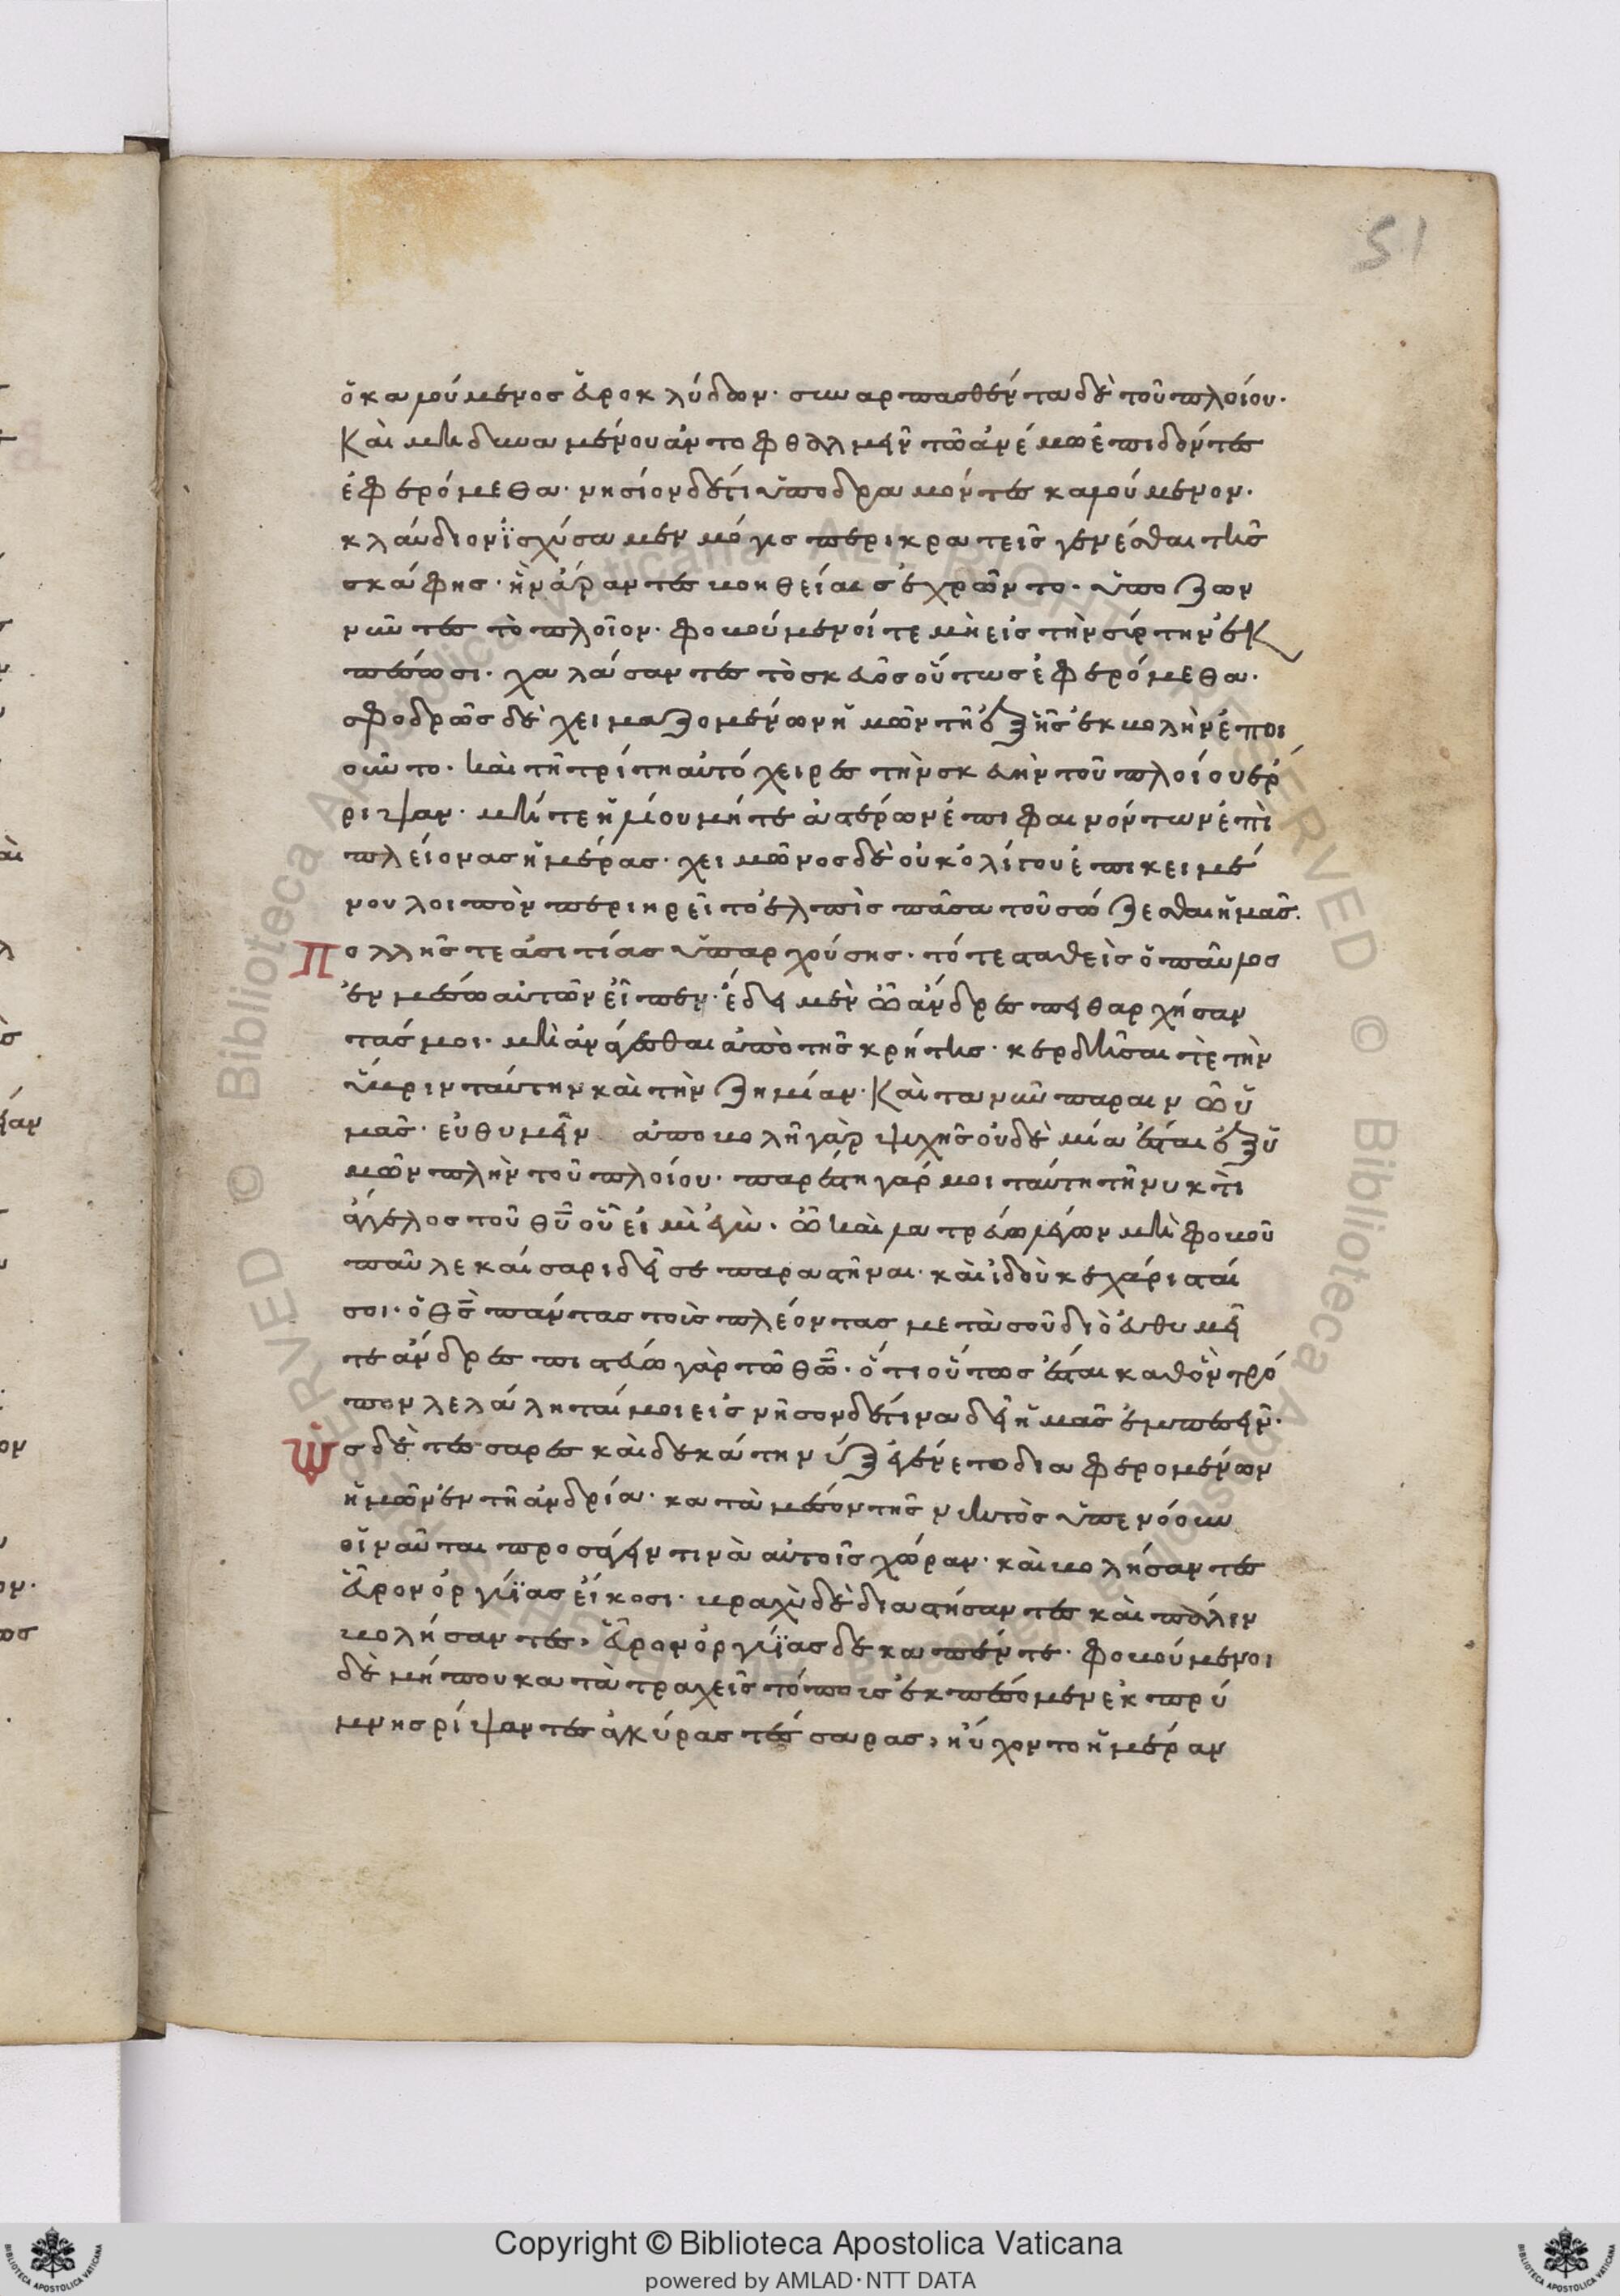 51
ὁ καλούμενος εὐροκλύδων· συναρπασθέντα δὲ τοῦ πλοίου·
Καὶ μὴ δυναμένου ἀντοφθαλμεῖν τῶ ἀνέμω ἐπιδόντες
ἐφερόμεθα· νησίον δέ τι ὑποδραμόντες καλούμενον·
κλαύδιον ἰσχύσαμεν μόγις περικρατεῖς γενέσθαι τῆς
σκάφης· ἣν ἄραντες βοηθείαις ἐχρῶντο· ὑποζων
νῦντες τὸ πλοῖον· φοβούμενοί τε μὴ εἰς τὴν σύρτην ἐκ
πέσωσι· χαλάσαντες τὸ σκεῦος οὕτως ἐφερόμεθα·
σφοδρῶς δὲ χειμαζομένων ἡμῶν τῆ ἑξῆς ἐκβολὴν ἐποι
οῦντο· καὶ τῆ τρίτη αὐτόχειρες τὴν σκευὴν τοῦ πλοίου ἔρ
ριψαν· μήτε ἡλίου μήτε ἀστέρων ἐπιφαινόντων ἐπὶ
πλείονας ἡμέρας· χειμῶνος δὲ οὐκ ὀλίγου ἐπικειμέ
νου λοιπὸν περιηρεῖτο ἐλπὶς πᾶσα τοῦ σώζεσθαι ἡμᾶς.
Πολλῆς τε ἀσιτίας ὑπαρχούσης· τότε σταθεὶς ὁ παῦλος
ἐν μέσω αὐτῶν εἶπεν· ἔδει μὲν ὦ ἄνδρες πειθαρχήσαν
τάς μοι· μὴ ἀνάγεσθαι ἀπὸ τῆς κρήτης· κερδῆσαι τὲ τὴν
ὕβριν ταύτην καὶ τὴν ζημίαν· Καὶ τανῦν παραινῶ ὑ
μᾶς· εὐθυμεῖν ἀποβολὴ γὰρ ψυχῆς οὐδὲ μία ἔσται ἐξ ὑ
μῶν πλὴν τοῦ πλοίου· παρέστη γάρ μοι ταύτη τῆ νυκτὶ
ἄγγελος τοῦ θυ οὗ εἰμὶ ἐγὼ· ὧ καὶ λατρεύω λέγων μὴ φοβοῦ
παῦλε καίσαρι δεῖ σε παραστῆναι· καὶ ἰδοὺ κεχάρισταί
σοι· ὁ θς πάντας τοὺς πλέοντας μετὰ σοῦ διὸ εὐθυμεῖ
τε ἄνδρες πιστεύω γὰρ τῶ θω· ὅτι οὕτως ἔσται καθ' ὃν τρό
πον λελάληταί μοι εἰς νῆσον δέ τινα δεῖ ἡμᾶς ἐμπεσεῖν·
Ὡς δὲ τέσσαρες καὶ δεκάτη νὺξ ἐγένετο διαφερομένων
ἡμῶν ἐν τῆ ἀνδρία· κατὰ μέσον τῆς νυκτὸς ὑπενόουν
οἱ ναῦται προσάγειν τινὰ αὐτοῖς χώραν· καὶ βολήσαντες
εὗρον ὀργυίας εἴκοσι· βραχὺ δὲ διαστήσαντες καὶ πάλιν
βολήσαντες, εὗρον ὀργυίας δεκαπέντε· φοβούμενοι
δὲ μήπου κατὰ τραχεῖς τόπους ἐκπέσομεν ἐκ πρύ
μνης ρίψαντες ἀγκύρας τέσσαρας, ηὔχοντο ἡμέραν
© Biblioteca Apostolica Vaticana ALL RIGHTS RESERVED
Copyright © Biblioteca Apostolica Vaticana
powered by AMLAD·NTT DATA